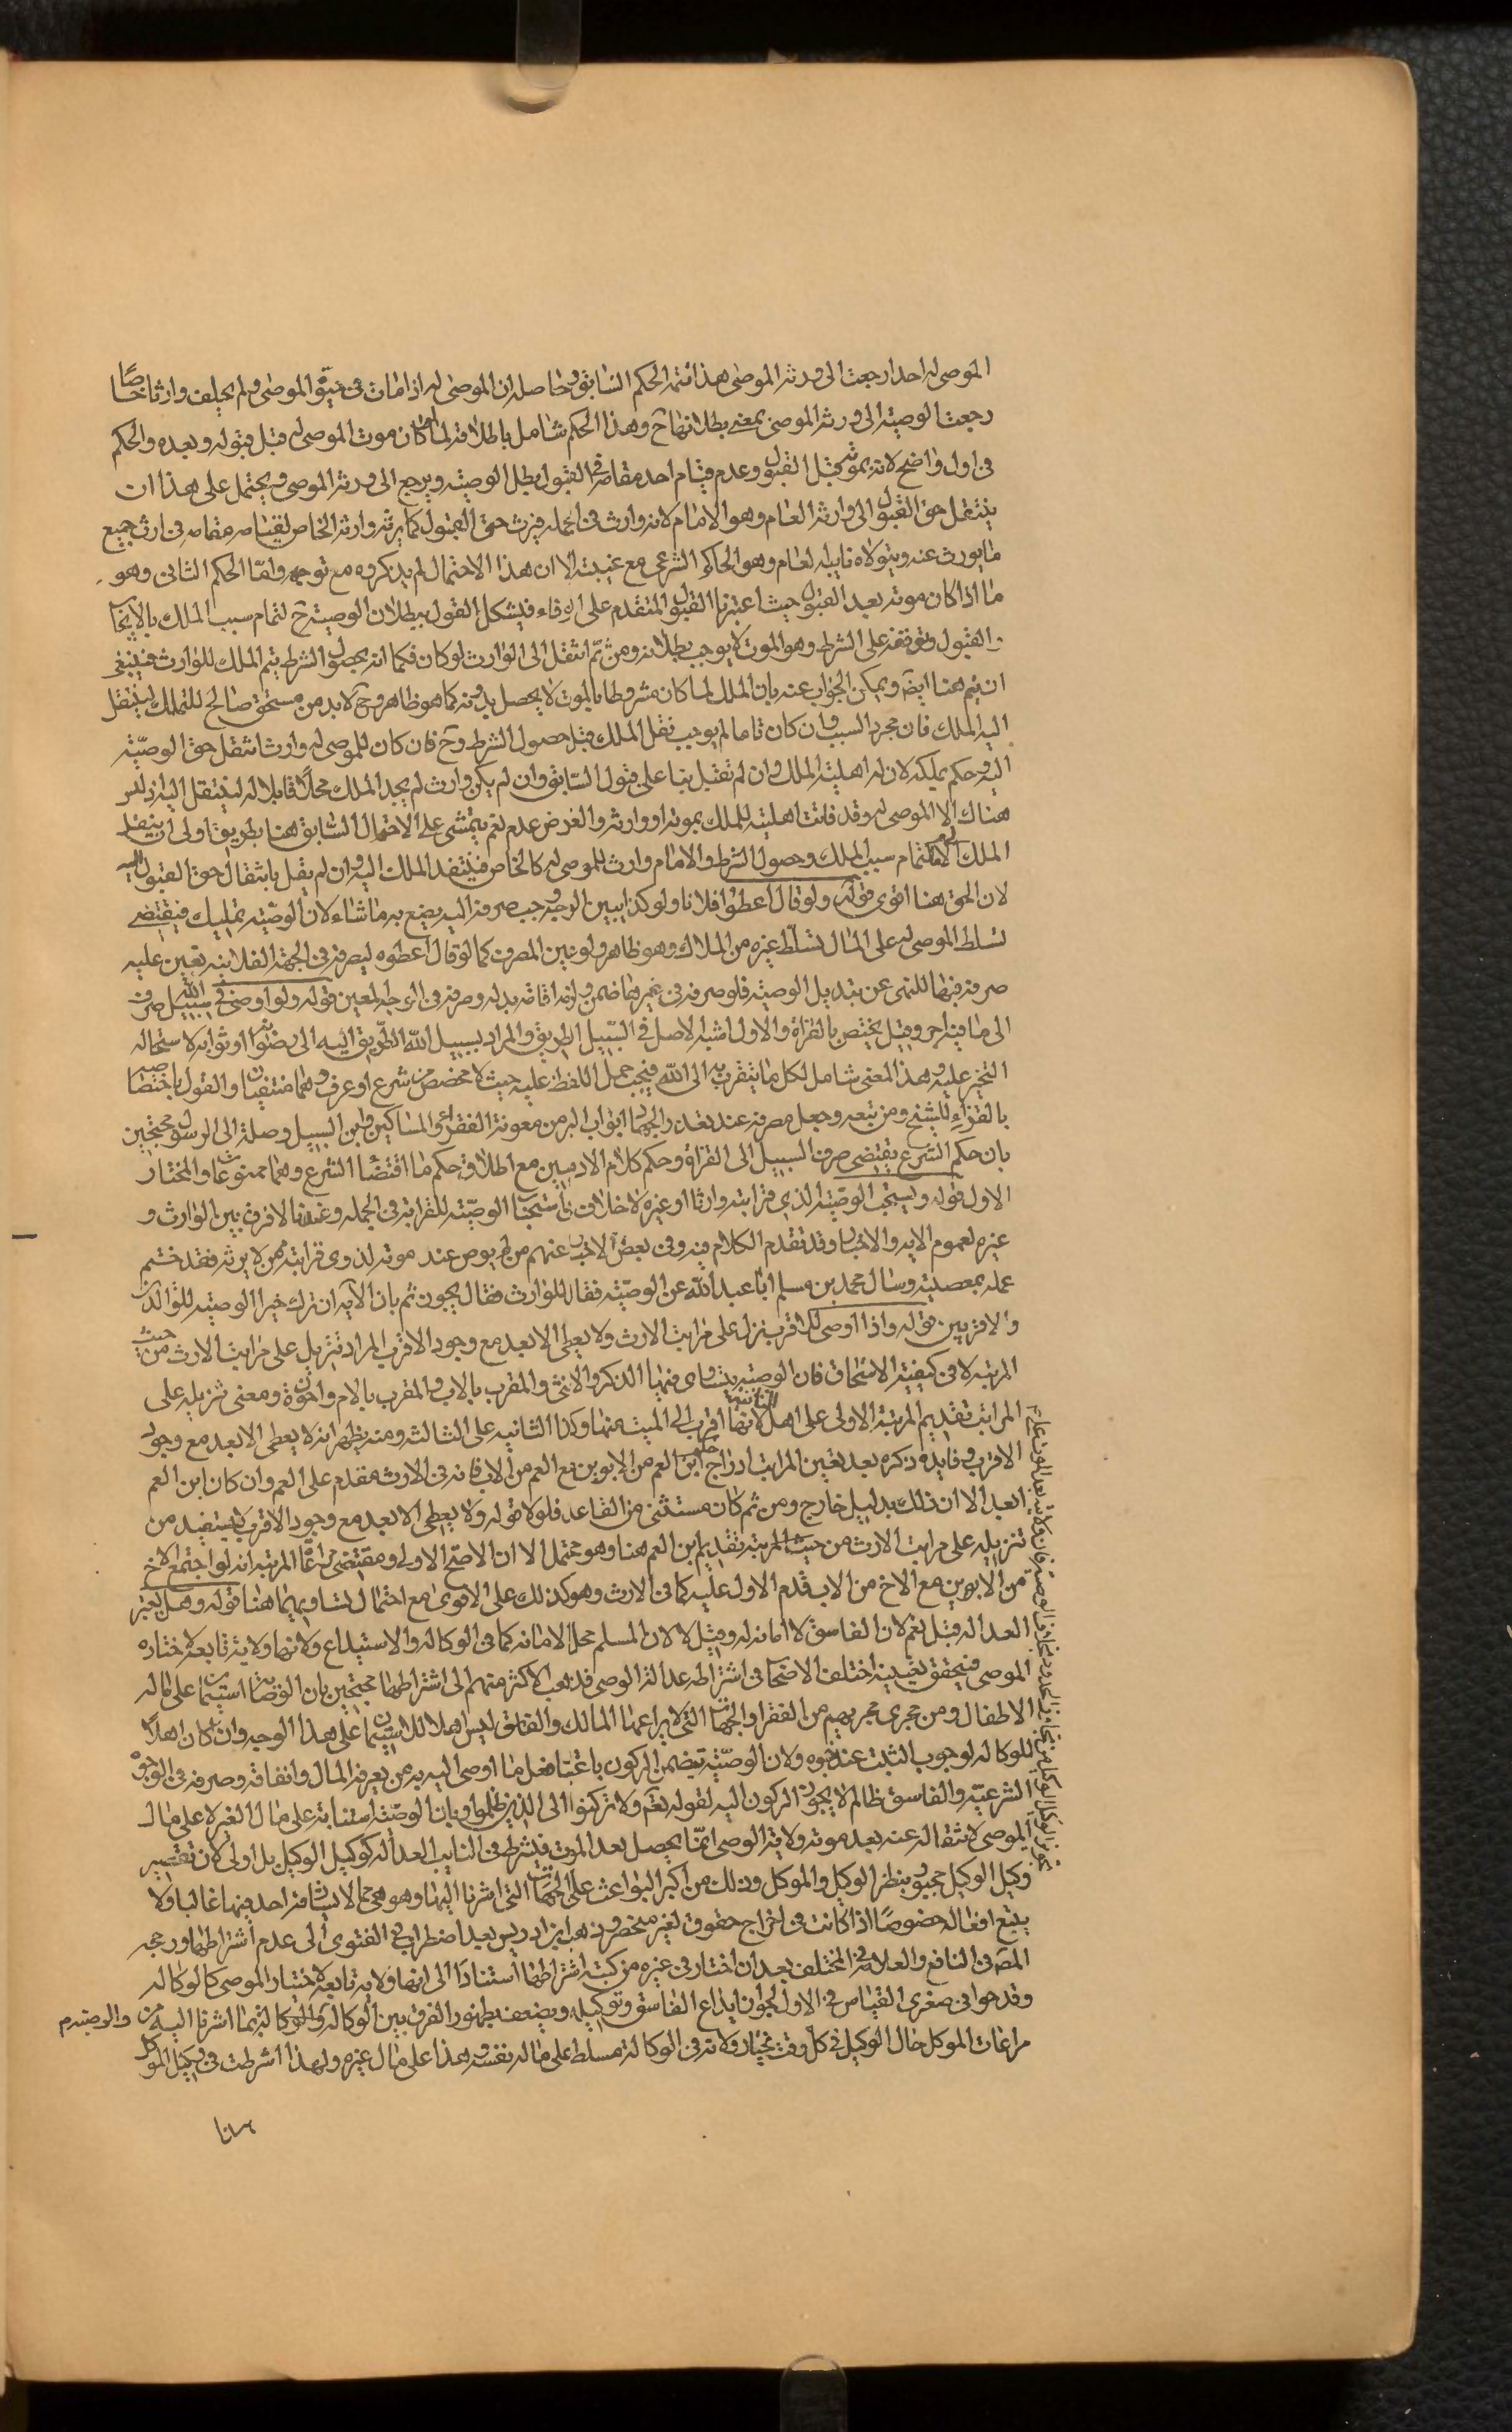 الموصى له احدا رجعت الى ورثة الموصى هذا تتمة الحكم السابق وحاصله ان الموصى له اذا مات في حيوة الموصى ولم يخلف وارثا خاصا
رجعت الوصية الى ورثة الموصى بمعنى بطلانها ح وهذا الحكم شامل باطلاقه لما لو كان موت الموصى له قبل قبوله وبعده والحكم
في اول واضح لانه بموته قبل القبول وعدم قيام احد مقامه في القبول يبطل الوصية ويرجع الى ورثة الموصى ويحتمل على هذا ان
ينتقل حق القبول الى وارثه العام وهو الامام لانه وارث في الجملة فيرث حق القبول كما يرثه وارثه الخاص لقيامه مقامه في ارث جميع
ما يورث عنه ويتولاه نايبه العام وهو الحاكم الشرعي مع غيبته الا ان هذا الاحتمال لم يذكروه مع توجهه واما الحكم الثانى وهو
ما اذا كان موته بعد القبول حيث اعتبرنا القبول المتقدم على الوفاة فيشكل القول ببطلان الوصية ح لتمام سبب الملك بالايجاب
والقبول وتوقفه على الشرط وهو الموت لا يوجب بطلانه ومن ثم انتقل الى الوارث لو كان فكما انه بحصول الشرط يتم الملك للوارث فينبغى
ان يتم هنا ايضا ويمكن الجواب عنه بان الملك لما كان مشروطا بالموت لا يحصل بدونه كما هو ظاهر وح لا بد من مستحق صالح للتملك لينتقل
اليه الملك فان مجرد السبب وان كان تاما لم يوجب نقل الملك قبل حصول الشرط وح فان كان للموصى له وارث انتقل حق الوصية
اليه وحكم بملكه لان له اهلية الملك وان لم تقبل بنا على قبول السابق وان لم يكن وارث لم يجد الملك محلا قابلا له لينتقل اليه اذ ليس
هناك الا الموصى له وقد فاتت اهليته للملك بموته او وارثه والغرض عدمه نعم يتمشى على الاحتمال السابق هنا بطريق اولى ان ينتقل
الملك الى الامام لتمام سبب الملك وحصول الشرط والامام وارث للموصى له كالخاص فينتقل الملك اليه وان لم يقل بانتقال حق القبول اليه
لان الحق هنا اقوى قوله ولو قال اعطوا فلانا ولو كذا يبين الوجه وجب صرفه اليه يصنع به ما شاء لان الوصية تمليك فيقتضى
تسلط الموصى له على المال تسلط غيره من الملاك وهو ظاهر ولو عين المصرف كما لو قال اعطوه ليصرفه في الجهة الفلانيه تعين عليه
صرفه فيها للنهى عن تبديل الوصية فلو صرفه في غيرها ضمن ولزمه اقامة بدله وصرفه في الوجه المعين قوله ولو اوصى في سبيل الله صرف
الى ما فيه اجر وقيل يختص بالغزاة والاول اشبه الاصل في السبيل الطريق والمراد بسبيل الله الطريق اليه الى رضوانه او ثوابه لاستحالة
التحيز عليه وهذا المعنى شامل لكل ما يتقرب به الى الله فيجب حمل اللفظ عليه حيث لا مخصص من شرع او عرف وهما منتفيان والقول باختصاصه
بالغزاة للشيخ ومن تبعه وجعل مصرفه عند تعذر الجهاد ابواب البر من معونة الفقراء والمساكين وابن السبيل وصلة آل الرسول محتجين
بان حكم الشرع يقتضى صرف السبيل الى الغزاة وحكم كلام الادميين مع اطلاقه حكم ما اقتضاه الشرع وهما ممنوعان والمختار
الاول قوله ويستحب الوصية لذى قرابته وارثا او غيره لا خلاف في استحباب الوصية للقرابة في الجملة وعندنا لا فرق بين الوارث و
غيره لعموم الايه والاخبار وقد تقدم الكلام فيه وفى بعض الاخبار عنهم من لم يوص عند موته لذوى قرابته ممن لا يرثه فقد ختم
عمله بمعصية وسال محمد بن مسلم ابا عبد الله عن الوصية فقال للوارث فقال يجوز ثم تلا الآية ان ترك خيرا الوصية للوالدين
والاقربين قوله واذا اوصى للاقرب نزل على مراتب الارث ولا يعطى الابعد مع وجود الاقرب المراد تنزيله على مراتب الارث من حيث
المرتبة لا في كيفية الاستحقاق فان الوصية يتساوى فيها الذكر والانثى والمقرب بالاب والمقرب بالام واخوة ومعنى تنزيله على
المراتب تقديم المرتبة الاولى على اهل الثانية لانها اقرب الى الميت منها وكذا الثانيه على الثالثة ومنه يظهر انه لا يعطى الابعد مع وجود
الاقرب وفايدة ذكره بعد تعين المراتب ادراج حكم ابن العم من الابوين مع العم من الاب فانه في الارث مقدم على العم وان كان ابن العم
ابعد الا ان ذلك بدليل خارج ومن ثم كان مستثنى من القاعدة فلولا قوله ولا يعطى الابعد مع وجود الاقرب لاستفيد من
تنزيله على مراتب الارث من حيث المرتبة تقديم ابن العم هنا وهو محتمل الا ان الاصح الاول ومقتضى مراعاة المرتبة انه لو اجتمع الاخ
من الابوين مع الاخ من الاب قدم الاول عليه كما في الارث وهو كذلك على الاقوى مع احتمال تساويهما هنا قوله وهل يعتبر
العدالة قيل نعم لان الفاسق لا امانة له وقيل لا لان المسلم محل الامانه كما في الوكالة والاستيداع ولانها ولاية تابعة لاختياره
الموصى فيتحقق بتعيينه اختلف الاصحاب في اشتراط عدالة الوصى فذهب الاكثر منهم الى اشتراطها محتجين بان الوصاية استيمان على مال
الاطفال ومن يجرى مجريهم من الفقرا والجهات التى لا يراعيها المالك والفاسق ليس اهلا للاستيمان على هذا الوجه وان كان اهلا
للوكالة لوجوب التثبت عند خبره ولان الوصية يتضمن الركون باعتبار فعل ما اوصى اليه به من تعرفه المال وانفاقه وصرفه في الوجوه
الشرعيه والفاسق ظالم لا يجوز الركون اليه لقوله تعم ولا تركنوا الى الذين ظلموا وبان الوصية استنابة على مال الغير لا على مال
الموصى لانتقاله عنه بعد موته وولاية الوصى انما يحصل بعد الموت فيشترط في النايب العدالة كوكيل الوكيل بل اولى لان تقصير
وكيل الوكيل مجبور بنظر الوكيل والموكل وذلك من اكبر البواعث على الجهات التى اشرنا اليها وهو هى مما لا يشاقه احد فيها غالبا ولا
يتبع افعاله خصوصا اذا كانت في اخراج حقوق لغير منحصر وذهب ابن ادريس بعد اضطراب في الفتوى الى عدم اشتراطها ورجحه
المصنف في النافع والعلامة في المختلف بعد ان اختار في غيره من كتبه اشتراطها استنادا الى انها ولاية تابعة لاختيار الموصى كالوكالة
وقد حوا في صغرى القياس في الاول لجواز ايداع الفاسق وتوكيله ويضعف بظهور الفرق بين الوكالة والوكالة بما اشرنا اليه من
والوصية م
مراعات الموكل حال الوكيل في كل وقت يختار ولانه في الوكالة مسلط على ماله نفسه وهذا على مال غيره ولهذا اشرطت في وكيل الوكيل